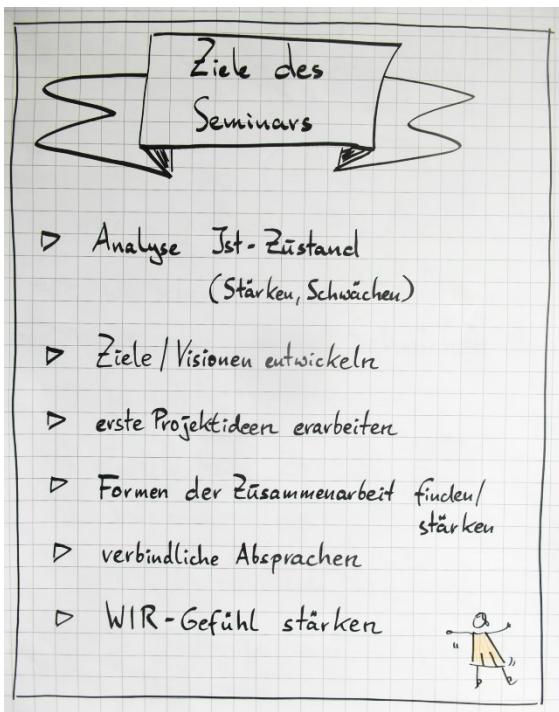 Ziele des
Seminars
Analyse Ist-Zustand
(Stärken, Schwächen)
Ziele / Visionen entwickeln
erste Projektideen erarbeiten
Formen der Zusammenarbeit finden/
stärken
verbindliche Absprachen
WIR-Gefühl stärken